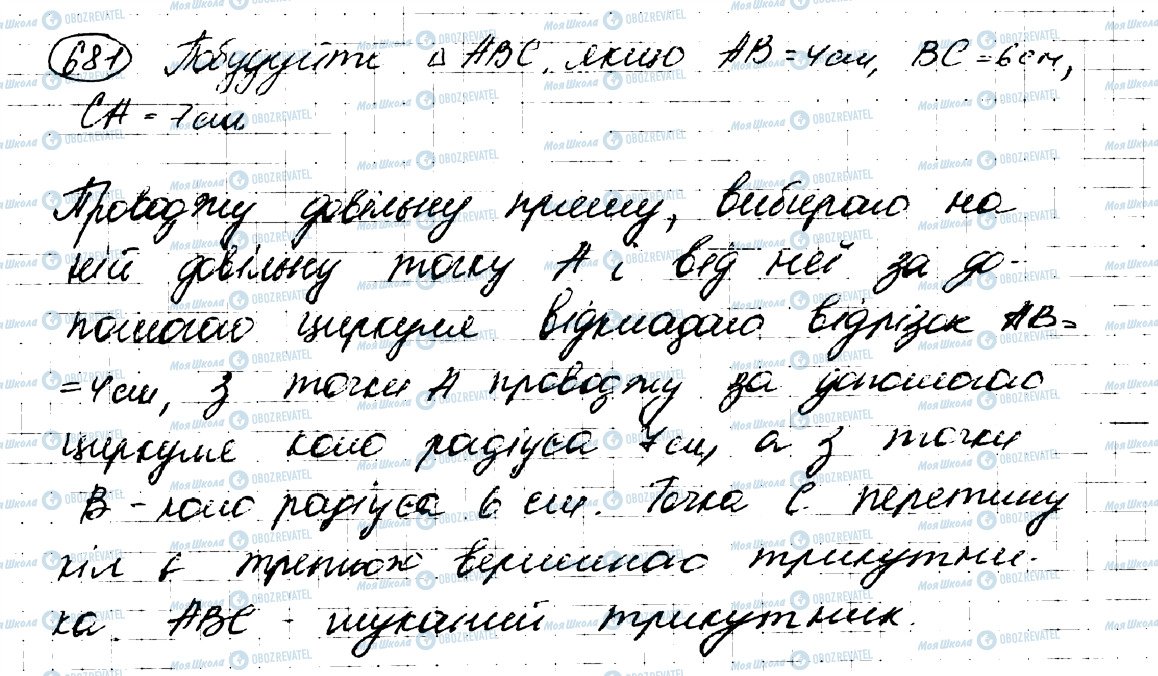 681 Побудуйте △ ABC, якщо AB = 4 см, BC = 6 см,
CA = 7 см.
Проводжу довільну пряму, вибираю на
ній довільну точку A і від неї за до-
помогою циркуля відкладаю відрізок AB =
= 4 см, з точки A проводжу за допомогою
циркуля коло радіуса 7 см, а з точки
B - коло радіуса 6 см. Точка C перетину
кіл є третьою вершиною трикутни-
ка. ABC - шуканий трикутник.